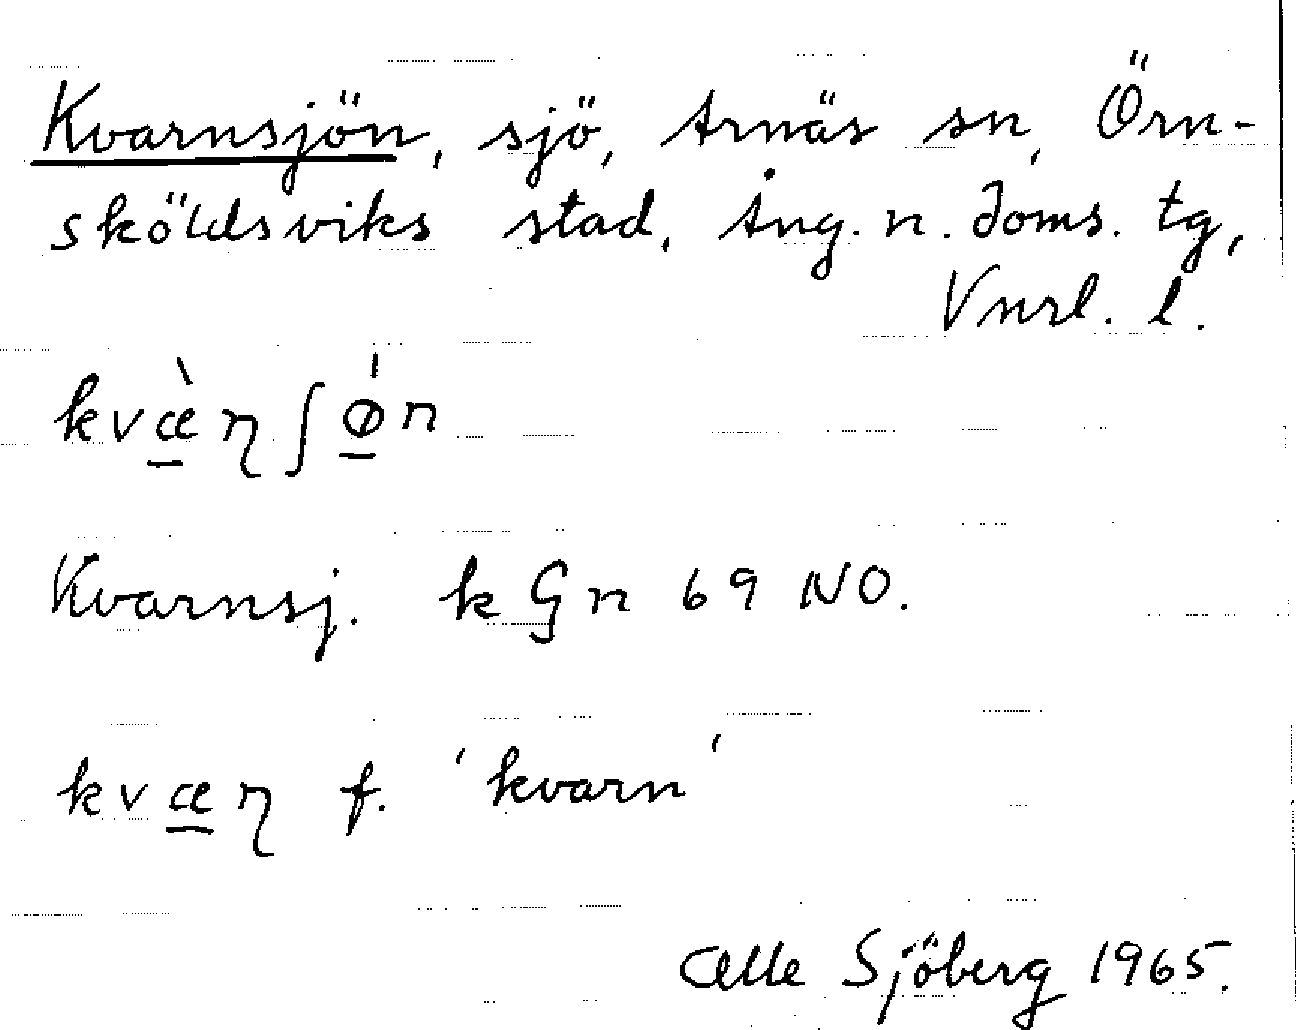 Kvarnsjön, sjö, Arnäs sn, Örn-
sköldsviks stad, Ång. n. doms. tg,
Vnrl. l.
kvæ̱̀ɳʃǿ̱n
Kvarnsj. k Gn 69 NO.
kvæ̱ɳ f. 'kvarn'
Olle Sjöberg 1965.